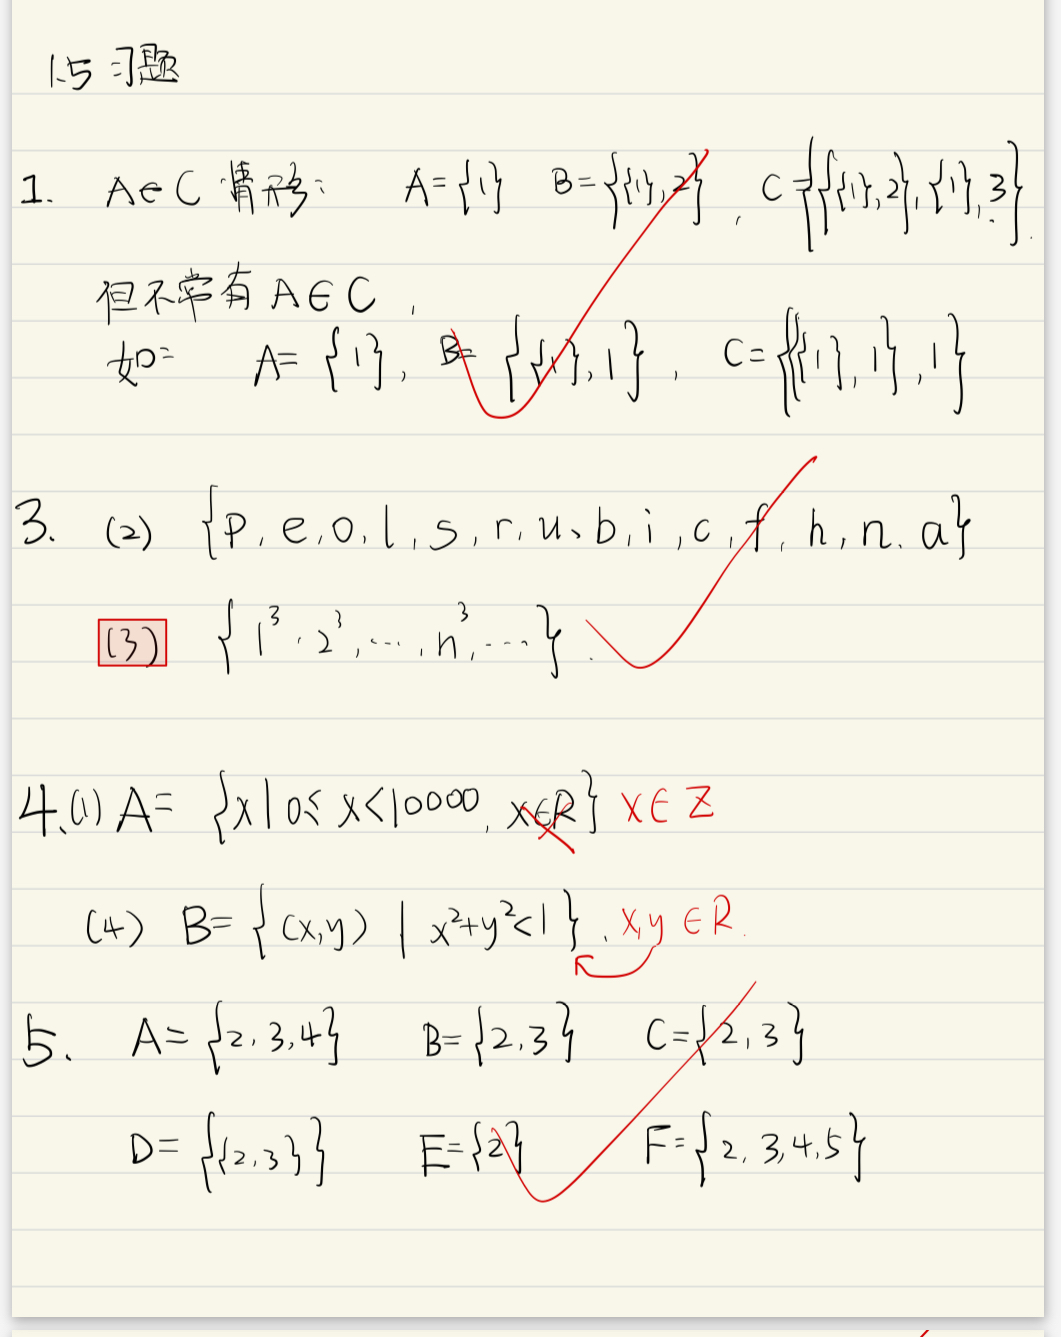 1.5 习题
1. A∈C 情形: A={1} B={{1},2}, C={{{1},2},{1},3}.
但不常有 A∈C,
如: A={1}, B={{1},1}, C={{{1},1},1}
3. (2) {p,e,o,l,s,r,u、b,i,c,f,h,n,a}
(3) {1³,2³,…,n³,…}.
4.(1) A={x|0≤x<10000, x∈R} x∈Z
(4) B={(x,y)|x²+y²<1}. x,y∈R.
5. A={2,3,4} B={2,3} C={2,3}
D={{2,3}} E={2} F={2,3,4,5}